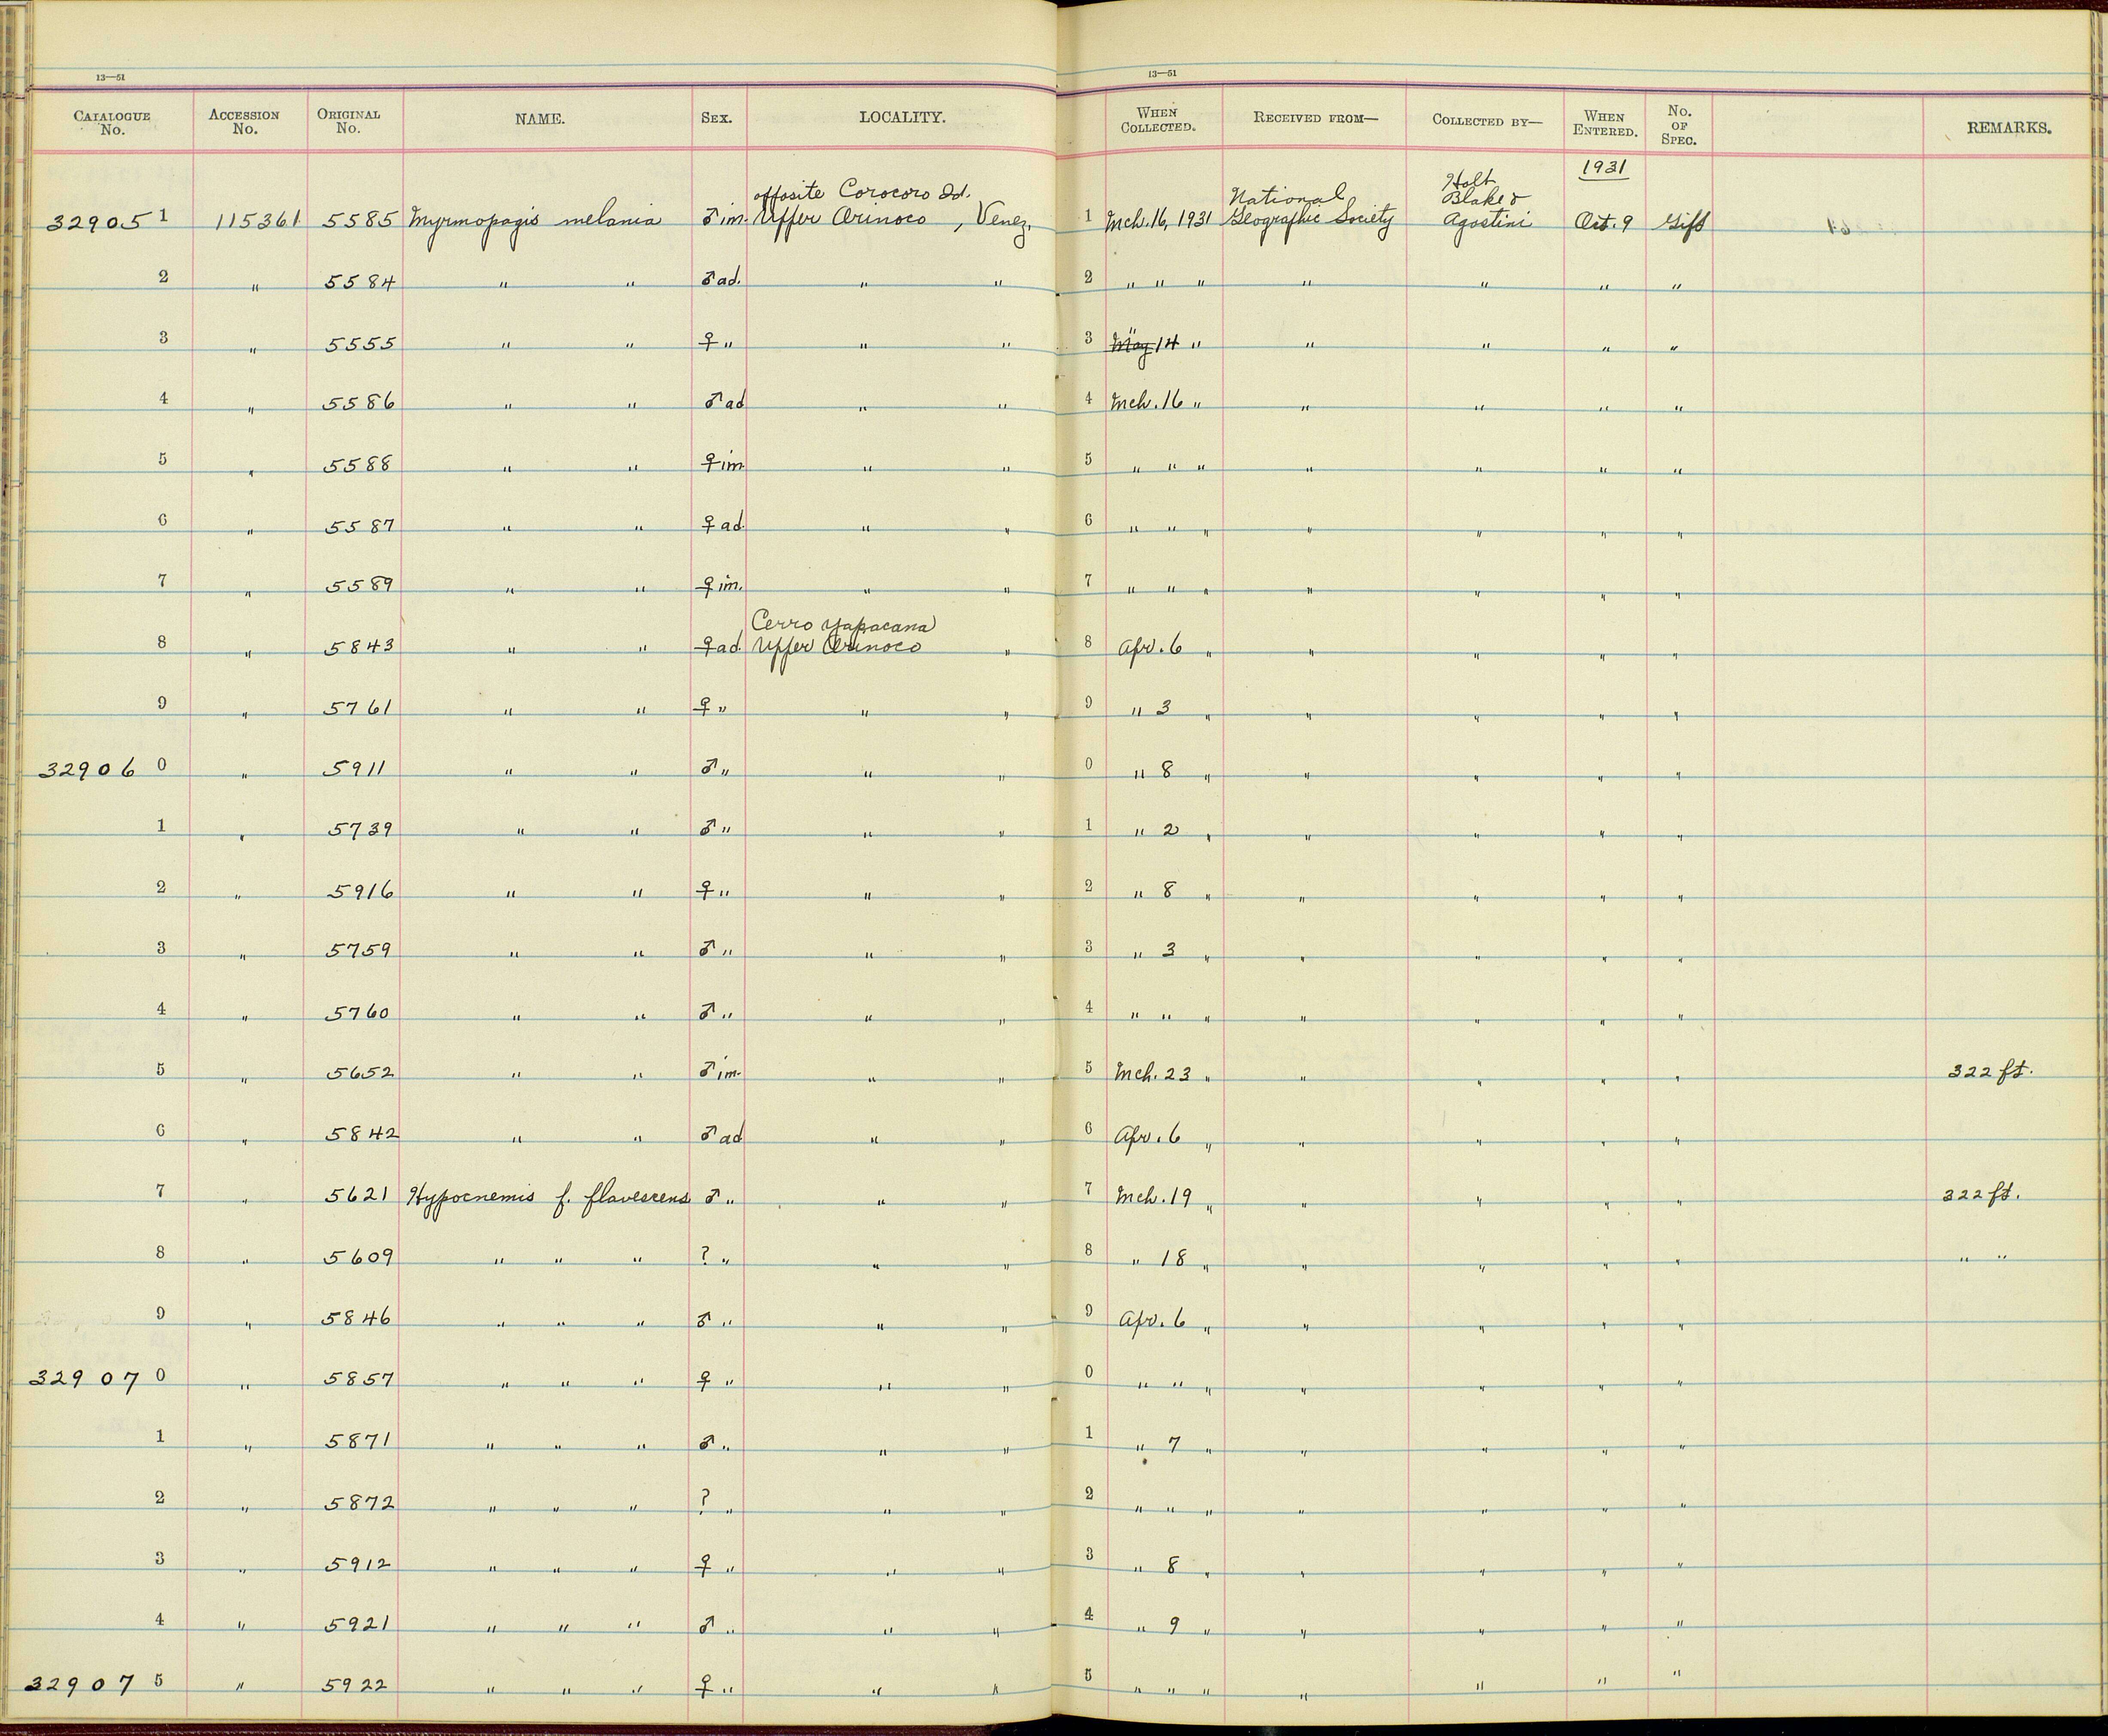 13—51 13—51
CATALOGUE No. ACCESSION No. ORIGINAL No. NAME. SEX. LOCALITY. WHEN COLLECTED. RECEIVED FROM— COLLECTED BY— WHEN ENTERED. No. OF SPEC. REMARKS.
1931
opposite Corocoro Id. National Holt Blake &
32905 1 115361 5585 Myrmopagis melania ♂ im. Upper Orinoco, Venez. 1 Mch. 16, 1931 Geographic Society Agostini Oct. 9 Gift
2 " 5584 " " ♂ ad. " " 2 " " " " " " "
3 " 5555 " " ♀ " " " 3 May " 14 " " " " "
4 " 5586 " " ♂ ad " " 4 Mch. 16 " " " " "
5 " 5588 " " ♀ im " " 5 " " " " " " "
6 " 5587 " " ♀ ad. " " 6 " " " " " " "
7 " 5589 " " ♀ im. " " 7 " " " " " " "
Cerro Yapacana
8 " 5843 " " ♀ ad. Upper Orinoco " 8 Apr. 6 " " " " "
9 " 5761 " " ♀ " " " 9 " 3 " " " " "
32906 0 " 5911 " " ♂ " " " 0 " 8 " " " " "
1 " 5739 " " ♂ " " " 1 " 2 " " " " "
2 " 5916 " " ♀ " " " 2 " 8 " " " " "
3 " 5759 " " ♂ " " " 3 " 3 " " " " "
4 " 5760 " " ♂ " " " 4 " " " " " " "
5 " 5652 " " ♂ im. " " 5 Mch. 23 " " " " " 322 ft.
6 " 5842 " " ♂ ad " " 6 Apr. 6 " " " " "
7 " 5621 Hypocnemis f. flavescens ♂ " " " 7 Mch. 19 " " " " " 322 ft.
8 " 5609 " " " ? " " " 8 " 18 " " " " " " "
9 " 5846 " " " ♂ " " " 9 Apr. 6 " " " " "
32907 0 " 5857 " " " ♀ " " " 0 " " " " " " "
1 " 5871 " " " ♂ " " " 1 " 7 " " " " "
2 " 5872 " " " ? " " " 2 " " " " " " "
3 " 5912 " " " ♀ " " " 3 " 8 " " " " "
4 " 5921 " " " ♂ " " " 4 " 9 " " " " "
32907 5 " 5922 " " " ♀ " " " 5 " " " " " " "